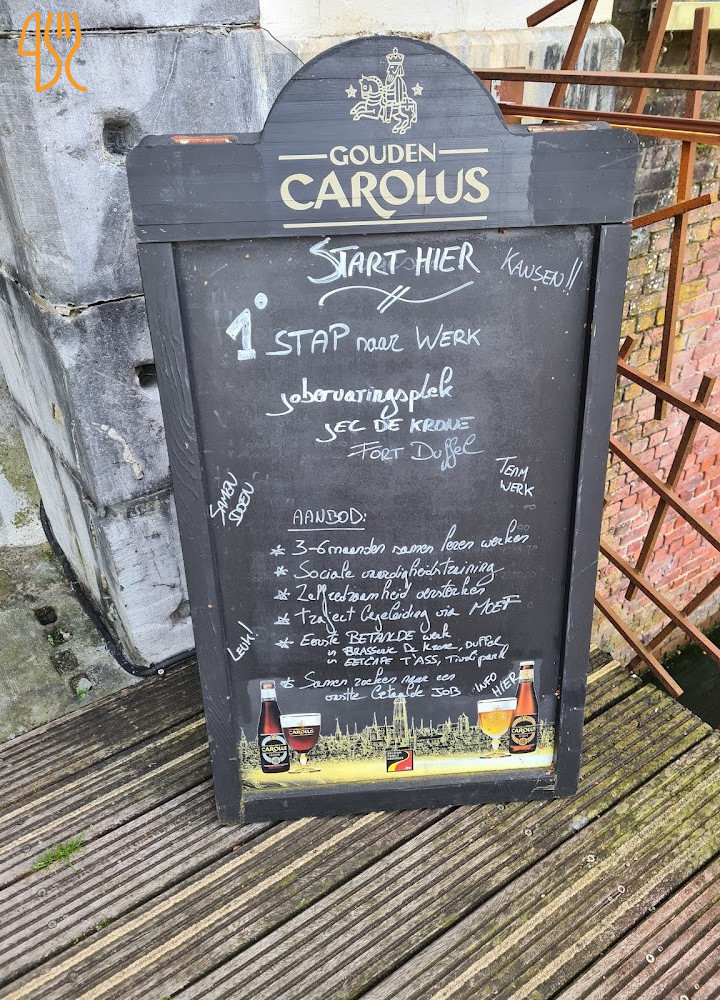 GOUDEN
CAROLUS
START HIER
KANSEN!!
1° STAP naar WERK
jobervaringsplek
JEC DE KRONE
FORT Duffel
TEAM
WERK
SAMEN
DOEN
AANBOD:
* 3-6 maanden samen leren werken
* Sociale vaardigheidstraining
* Zelfredzaamheid versterken
* traject begeleiding via
* Eerste BETAALDE werk
in BRASSERIE De Krone, DUFFEL
in EETCAFE T'ASS, Tivoli park
LEUK!
* Samen zoeken naar een
vaste betaalde JOB
INFO
HIER
CAROLUS
CAROLUS
CAROLUS